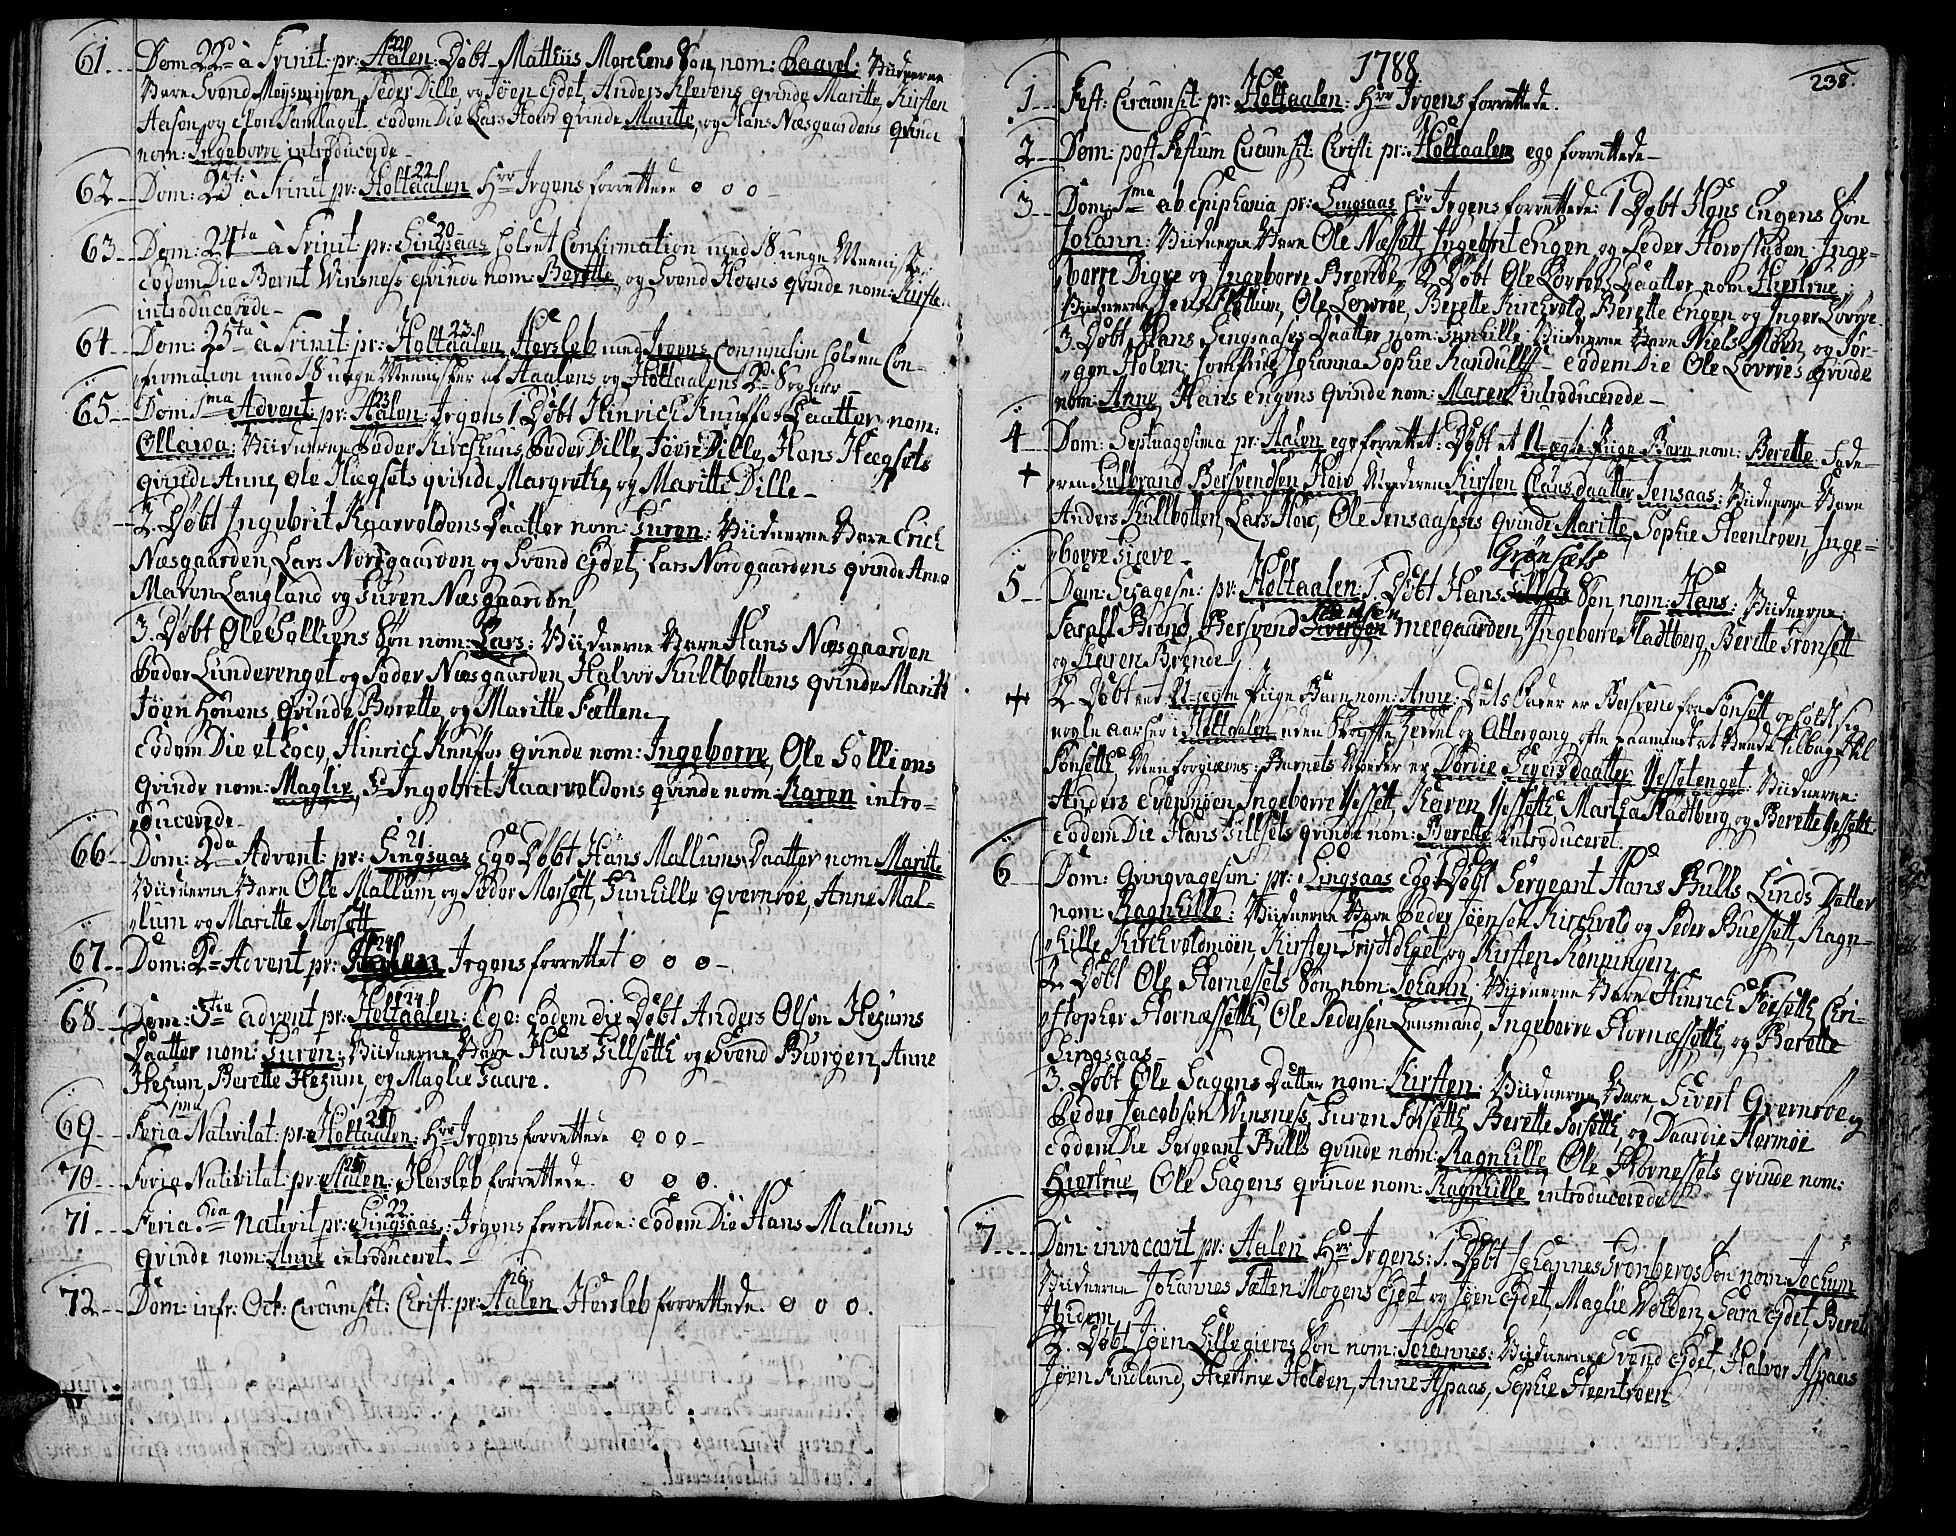 61 Dom: 22de à Trinit: pr: Aalen: Døbt Matthiis Morchens Søn, nom: Paavel: Viidnerne
Vare Svend Møysmoen, Peder Dille og Jøen Eydet, Anders Klevens qvinde Maritte, Kirsten
Aasen, og Elen Samlaget. Eodem Die Lars Hovs qvinde Maritte, og Hans Næsgaardens qvinde
nom: Ingeborre introducerede
62 Dom: 23de à Trinit: pr: 22 Holtaalen Hrr Irgens forrettede o o o
63 Dom: 24ta à Trinit: pr: 20 Singsaas holdt Confirmation med 18 unge Mennisker
eodem Die Bernt Winsness qvinde nom: Berette, og Svend Hoens qvinde nom: Kirsten
introducerede
64 Dom: 25ta à Trinit: pr: 23 Holtaalen Hersleb med Irgens Conjunctim holden Con-
firmation med 18 unge Mennisker af Aalens og Holtaalens 2de Sogner
65 Dom 1ma Advent: pr: 23 Aalen: Irgens 1 Døbt Hinrich Knuffs Daatter nom:
Ollawa: Viidnerne Peder Kirchhuus, Peder Dille, Jøen Dille, Hans Hægsets
qvinde Anne, Ole Hægsets qvinde Margrethe, og Maritte Dille
2. Døbt Ingebrit Kaarvoldens Daatter nom: Guren: Viidnerne Vare Erich
Næsgaarden, Lars Nordgaarden og Svend Eydet, Lars Nordgaardens qvinde Anne
Maren Langland og Guren Næsgaarden,
3. Døbt Ole Solliens Søn nom: Lars: Viidnerne Vare Hans Næsgaarden
Peder Lundevenget og Peder Næsgaarden, Halvor Kultbottens qvinde Maritte
Jøen Houens qvinde Berette, og Maritte Fætten.
eodem Die et Loco, Hinrich Knuffs qvinde nom: Ingeborre, Ole Solliens
qvinde nom: Maglie, Ingebrit Kaarvoldens qvinde nom: Karen intro-
ducerede
66 Dom: 2da Advent: pr: 21 Singsaas Ego Døbt Hans Mallums Daatter nom Maritte
Viidnerne Vare Ole Mallum, og Peder Morsett, Gunhille qvernrøe, Anne Mal-
lum og Maritte Morsett
67 Dom: 2de Advent pr: 24 Aalen Irgens forrettet o o o
68 Dom: 3tia advent pr: 24 Holtaalen: Ego: Eodem die Døbt Anders Olsen Hegums
Daatter nom: Guren: Viidnerne Vare Hans Gillseth og Svend Biørgen, Anne
Hegum, Berette Hegum, og Maglie Gaare.
69 Feria 1ma Nativitat: pr: 25 Holtaalen: Hrr Irgens forrettede o o o
70 Feria Nativitat: pr: 25 Aalen: Hersleb forrettede. o o o.
71 Feria 2da Nativit pr: 22 Singsaas: Irgens forrettede: eodem Die Hans Malums
qvinde nom: Anne introduceret
72 Dom: infr: Oct: Circumsit: Christ: pr: 26 Aalen Hersleb forrettede. o o o.
1788.
238.
1 Fest: Circumsit: pr: Holtaalen: Hrr Irgens forrettede.
2 Dom: post Festum Circumsit: Christi pr: Holtaalen ego forrettede
3 Dom: 1ma ab Epiphania pr: Singsaas Hrr Irgens forrettede: 1 Døbt Hans Engens Søn
Johann: Viidnerne Vare Ole Næsset, Ingebrit Engen, og Peder Hovstuden, Inge-
borre Digre og Ingeborre Brende, 2 Døbt Ole Lovrøes Daatter nom Hiertrue
Viidnerne Jens Mollum, Ole Lovrøe, Berette Kirchvold, Berette Engen og Inger Lovrøe
3. Døbt Hans Singsaases Daatter nom: Gunhille, Viidnerne Vare Niels Moen, og Jør-
gen Holen, Jomfrue Johanna Sophie Randulff eodem Die Ole Lovrøes qvinde
nom: Anne, Hans Engens qvinde nom: Maren introducerede
4 Dom: Septuagesima pr: Aalen ego forrettet: Døbt et Uægte Piige Barn nom: Berette, Fade-
+ ren Gulbrand Bersvendsen Hov, Moderen Kirsten Clausdaatter Jensaas: Viidnerne Vare
Anders Kullbotten, Lars Hov, Ole Jensaases qvinde Maritte, Sophie Steentrøen, Inge-
borre Siære
5 Dom: Sexagesm: pr: Holtaalen: 1 Døbt Hans Grønsets Søn nom: Hans: Viidnerne:
Faroll Brend, Bersvend Pedersen meegaarden, Ingeborre Fladtberg, Berette Grønsett
og Karen Brende,
+ 2 Døbt ent Uægte Piige Barn nom: Anne: Dets Fader er Bersvend fra Tønsett opholdt sig
nogle aar her i Holtaalen uden Skrifte Zeddel og Altergang, ofte paamindet at Vende tilbage til
Tønsett, Men forgieves: Barnets Moder er Dordie Sivers daatter Hessetenget: Viidnerne:
Anders Evenmoen, Ingeborre Hessett, Karen Hesseth, Martha Fladtberg, og Berette Hessett
eodem Die Hans Gillsets qvinde nom: Berette introduceret.
6 Dom: Qvinqvagesim: pr: Singsaas Ego 1 Døbt Sergeant Hans Bulls Linds Datter
nom: Ragnhille: Viidnerne Vare Peder Jøensen Kirchvold og Peder Buessett, Ragn-
hille Kirchvoldmoen, Kirsten Grytdhet, og Kirsten Rønningen,
2. Døbt Ole Hornessets Søn nom: Johann: Viidnerne Vare Hinrich Forseth, Chri-
stopher Hornæsseth, Ole Pedersen Lensmand, Ingeborre Hornæsseth, og Berette
Singsaas
3. Døbt Ole Sagens Datter nom: Kirsten: Viidnerne Vare, Sivert Qvernrøe og
Peder Jacobsen Winsness, Guren Forseth, Berette Forseth, og Daardie Hermoe
eodem Die Sergeant Bulls qvinde nom: Ragnhille, Ole Hornessets qvinde nom:
Hiertrue, Ole Sagens qvinde nom: Ragnhille introducerede
7 Dom: invocavit pr: Aalen Hrr Irgens: 1. Døbt Johannes Grønbergs Søn nom: Jochum
Viidnerne Johannes Fætten Mogens Eydet og Jøen Eydett, Maglie Volden, Sara Eydet, Beret
Hidem,
2. Døbt Jøen Lillegieres Søn nom: Johannes: Viidnerne Svend Eydet, Halvor Aspaas
Jøen Findland, Hiertrue Holden, Anne Aspaas, Sophie Steentrøen